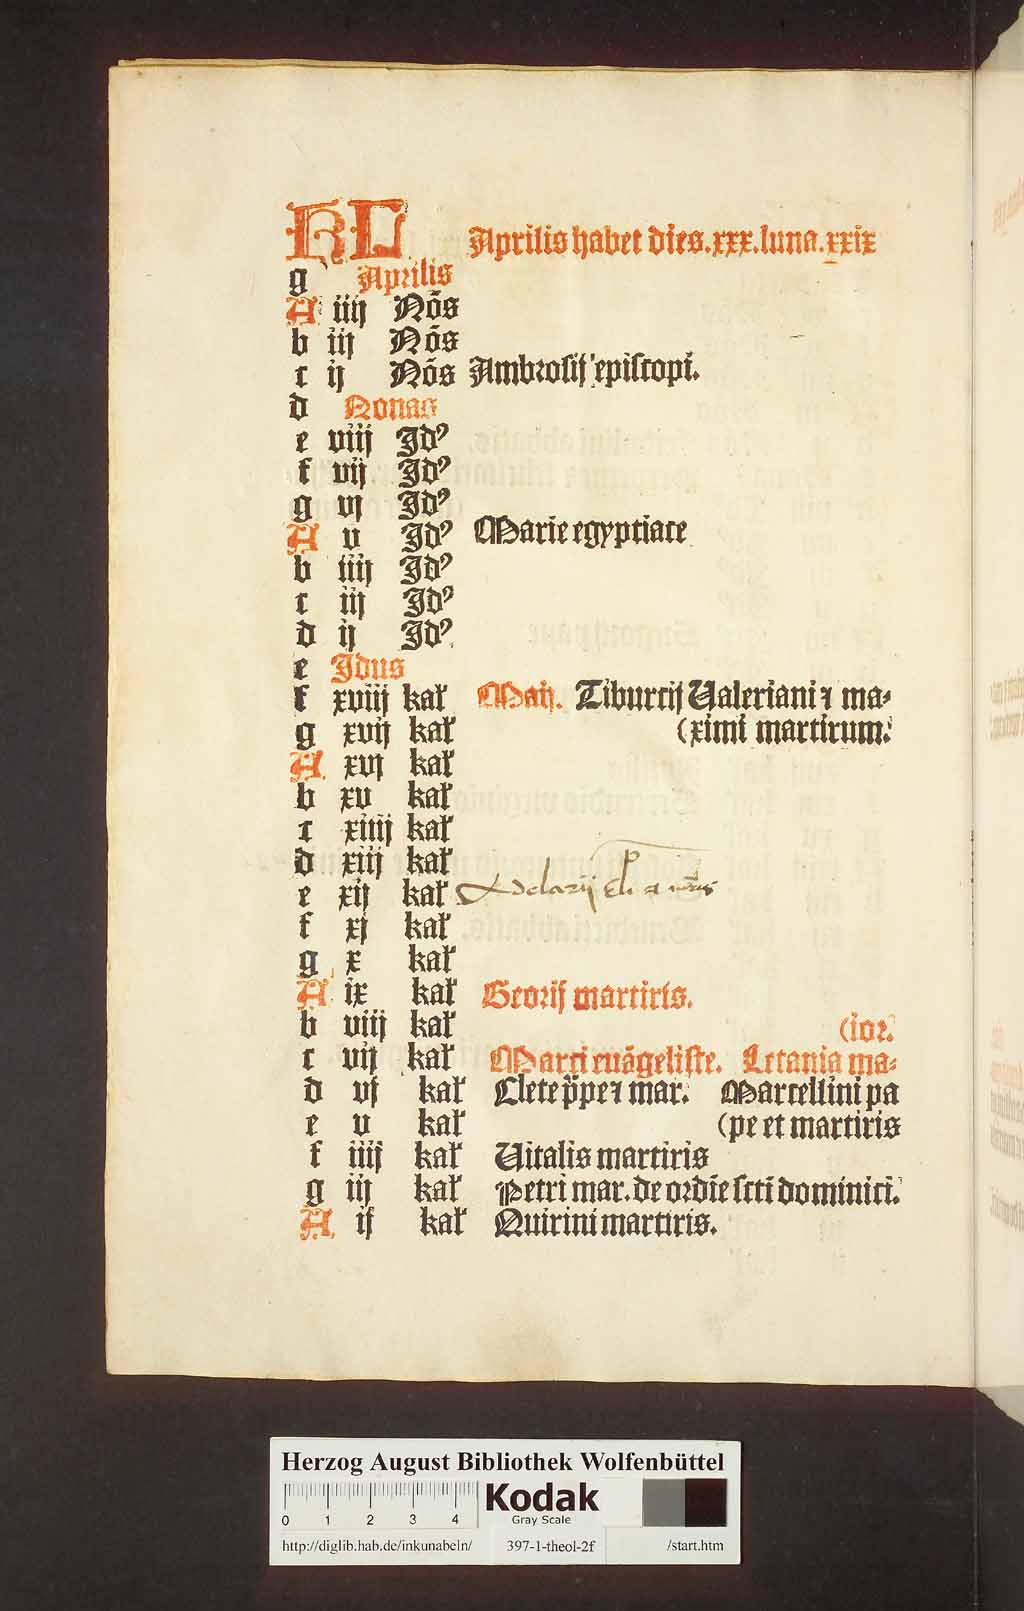 KL Aprilis habet dies.xxx.luna.xxix
g Aprilis
A iiij Nōs
b iij Nōs
c ij Nōs Ambrosij episcopi.
d Nonas
e viij Idꝰ
f vij Idꝰ
g vj Idꝰ
A v Idꝰ Marie egyptiace
b iiij Idꝰ
c iij Idꝰ
d ij Idꝰ
e Idus
f xviij kal Maij. Tiburcij Ualeriani ⁊ ma-
g xvij kal (ximi martirum.
A xvj kal
b xv kal
c xiiij kal
d xiij kal
e xij kal
f xj kal
g x kal
A ix kal Georij martiris.
b viij kal (ior.
c vij kal Marci euāgeliste. Letania ma-
d vj kal Clete p̄pe ⁊ mar. Marcellini pa
e v kal (pe et martiris
f iiij kal Uitalis martiris
g iij kal Petri mar. de ordīe scti dominici.
A ij kal Quirini martiris.
Herzog August Bibliothek Wolfenbüttel
0 1 2 3 4
Kodak
Gray Scale
http://diglib.hab.de/inkunabeln/ 397-1-theol-2f /start.htm